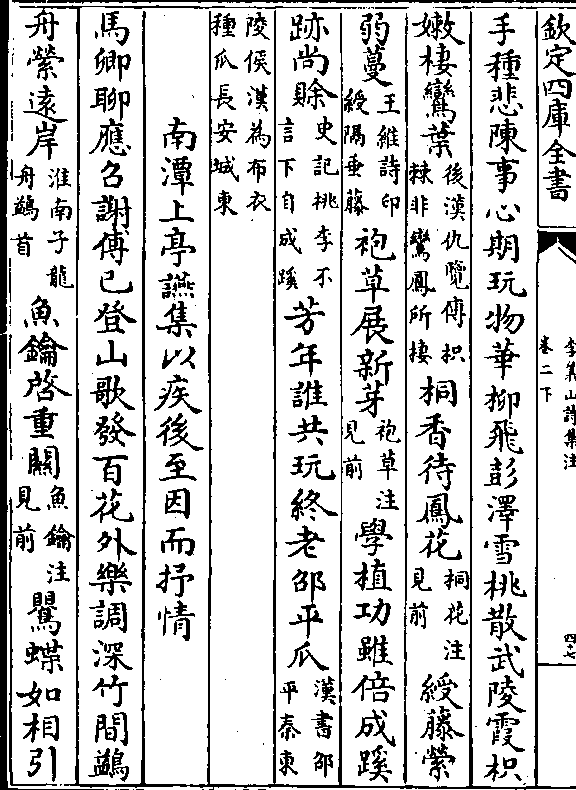 欽定四庫全書
李義山詩集注
卷二下
四十七
手種悲陳事心期玩物華柳飛彭澤雪桃散武陵霞枳
嫩棲鸞葉後漢仇覽傳枳棘非鸞鳳所棲桐香待鳳花桐花注見前綬藤縈
弱蔓王維詩印綬隔垂藤袍草展新芽袍草注見前學植功雖倍成蹊
跡尚賖史記桃李不言下自成蹊芳年誰共玩終老邵平瓜漢書邵平秦東
陵侯漢為布衣種瓜長安城東
南潭上亭讌集以疾後至因而抒情
馬卿聊應召謝傅已登山歌發百花外樂調深竹間鷁
舟縈遠岸淮南子龍舟鷁首魚鑰啓重關魚鑰注見前鸎蝶如相引